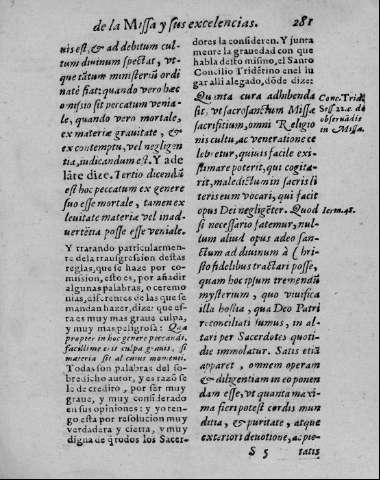 de la Missa y sus excelencias. 281
nis est, & ad debitum cul-
tum diuinum spectat, vt-
que tātum ministeriū ordi
natè fiat: quando vero hæc
omissio sit peccatum venia-
le, quando vero mortale,
ex materiæ grauitate, &
ex contemptu, vel negligen
tia, iudicandum est. Y ade
lāte dize. Tertio dicendū
est hoc peccatum ex genere
suo esse mortale, tamen ex
leuitate materiæ vel inad-
uertētia posse esse veniale.
Y tratando particularmen-
te de la transgression destas
reglas, que se haze por co-
mission, esto es, por añadir
algunas palabras, o ceremo
nias, diferences de las que se
mandan hazer, dize: que es-
ta es muy mas graue culpa,
y muy mas peligrosa: Qua
propter in hoc genere peccandi,
facillime erit culpa grauis, si
materia sit al cuius momenti.
Todas son palabras del so-
bredicho autor, y es razō se
le de credito, por ser muy
graue, y muy considerado
en sus opiniones: y yo ten-
go esta por resolucion muy
verdadera y cierta, y muy
digna de q̄ todos los Sacer-
dores la consideren. Y junta
mente la grauedad con que
habla desto mismo, el Santo
Concilio Tridētino en el lu
gar alli alegado, dōde dize:
Quanta cura adhibenda
sit, vt sacrosanctum Missæ
sacrifitium, omni Religio
nis cultu, ac veneratione ce
lebretur, quiuis facile exi-
stimare poterit, qui cogita-
rit, maledictum in sacris li
teris eum vocari, qui facit
opus Dei negligēter. Quod
si necessario fatemur, nul-
lum aliud opus adeo san-
ctum ad diuinum à Chri-
sto fidelibus tractari posse,
quam hoc ipsum tremendū
mysterium, quo viuifica
illa hostia, qua Deo Patri
reconciliati sumus, in al-
tari per Sacerdotes quoti-
die immolatur. Satis etiā
apparet, omnem operam
& diligentiam in eo ponen
dam esse, vt quanta maxi
ma fieri potest cordis mun
ditia, & puritate, atque
exteriori deuotione, ac pie-
S 5 tatis
Conc. Tridē
Sess 22. c. de
obseruādis
in Missæ.
Ierm. 48.